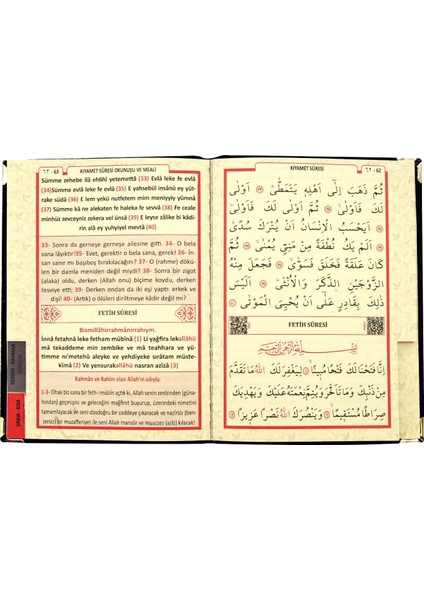 ٦٣ - 63 KIYAMET SÛRESİ OKUNUŞU VE MEALİ
Sümme zehebe ilâ ehlihî yetemettâ (33) Evlâ leke fe evlâ
(34)Sümme evlâ leke fe evlâ (35) E yahsebül insânü ey yüt-
rake südâ (36) E lem yekü nutfetem mim meniyyiy yümnâ
(37) Sümme kâ ne alekaten fe haleka fe sevvâ (38) Fe ceale
minhüz zevceyniz zekera vel ünsâ (39) E leyse zâlike bi kâdi-
rin alâ ey yuhyiyel mevtâ (40)
33- Sonra da gerneşe gerneşe ailesine gitti. 34- O bela
sana lâyıktır! 35- Evet, gerektir o bela sana, gerek! 36- İn-
san sanır mı başıboş bırakılacağını? 37- O (rahme) dökü-
len bir damla meniden değil miydi? 38- Sonra bir zigot
(alaka) oldu, derken (Allah onu) biçime koydu, derken
tesviye etti; 39- Derken ondan da iki eşi yaptı: erkek ve
dişi! 40- (Artık) o ölüleri diriltmeye kâdir değil mi?
FETİH SÛRESİ
Bismillâhirrahmânirrahıym.
İnnâ fetahnâ leke fetham mübînâ (1) Li yağfira lekallâhü
mâ tekaddeme min zembike ve mâ teahhara ve yü-
timme ni'metehû aleyke ve yehdiyeke sırâtam müste-
kîmâ (2) Ve yensurakallâhü nasran azîzâ (3)
Rahmân ve Rahim olan Allah'ın adıyla.
1-3- Elhak biz sana bir feth-i mübîn açtık ki, Allah senin zenbinden (güna-
hından) geçmişini ve geleceğini mağfiret buyurup, üzerindeki nimetini
tamamlayacak ve seni dosdoğru bir caddeye çıkaracak ve nazîrsiz (ben-
zersiz) bir muzafferiyet ile seni Allah mansûr ve muazzez (azîz) kılacak!
KIYAMET SÛRESİ ٦٢ - 62
ثُمَّ ذَهَبَ اِلٰٓى اَهْلِه۪ يَتَمَطّٰىۜ ﴿٣٣﴾ اَوْلٰى
لَكَ فَاَوْلٰىۙ ﴿٣٤﴾ ثُمَّ اَوْلٰى لَكَ فَاَوْلٰىۜ ﴿٣٥﴾
اَيَحْسَبُ الْاِنْسَانُ اَنْ يُتْرَكَ سُدًىۜ
﴿٣٦﴾ اَلَمْ يَكُ نُطْفَةً مِنْ مَنِيٍّ يُمْنٰىۙ ﴿٣٧﴾ ثُمَّ
كَانَ عَلَقَةً فَخَلَقَ فَسَوّٰىۙ ﴿٣٨﴾ فَجَعَلَ مِنْهُ
الزَّوْجَيْنِ الذَّكَرَ وَالْاُنْثٰىۜ ﴿٣٩﴾ اَلَيْسَ
ذٰلِكَ بِقَادِرٍ عَلٰٓى اَنْ يُحْيِيَ الْمَوْتٰى ﴿٤٠﴾
FETİH SÛRESİ
بِسْمِ اللّٰهِ الرَّحْمٰنِ الرَّح۪يمِ
اِنَّا فَتَحْنَا لَكَ فَتْحًا مُب۪ينًاۙ ﴿١﴾ لِيَغْفِرَ لَكَ اللّٰهُ مَا تَقَدَّمَ
مِنْ ذَنْبِكَ وَمَا تَاَخَّرَ وَيُتِمَّ نِعْمَتَهُ عَلَيْكَ وَيَهْدِيَكَ
صِرَاطًا مُسْتَق۪يمًاۙ ﴿٢﴾ وَيَنْصُرَكَ اللّٰهُ نَصْرًا عَز۪يزًا ﴿٣﴾